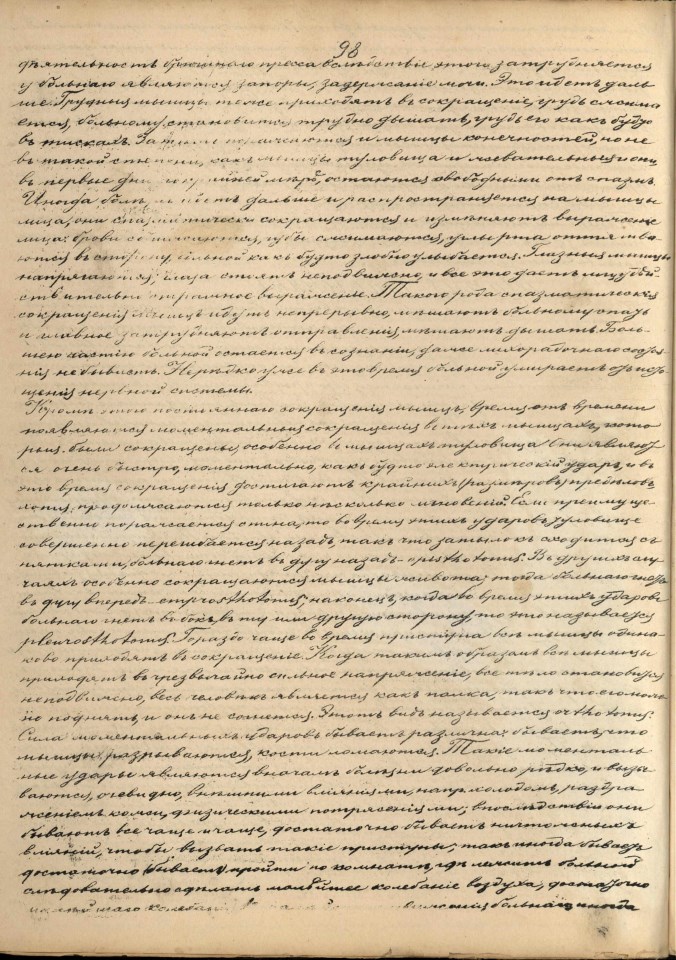 98
дѣятельность брюшнаго пресса вслѣдствіе этого затрудняется
у больнаго являются запоры, задержаніе мочи. Это идетъ даль
ше. Грудныя мышцы тоже приходятъ въ сокращеніе, грудь сжима
ется, больному становится трудно дышать, грудь его какъ будто
въ тискахъ. Затѣмъ поражаются и мышцы конечностей, но не
въ такой степени, какъ мышцы туловища и жевательныя и они,
въ первые дни по крайней мѣрѣ, остаются свободными отъ спазм.
Иногда болѣзнь идетъ дальше и распространяется на мышцы
лица, они спазматически сокращаются и измѣняютъ выраженіе
лица: брови стягиваются, губы сжимаются, углы рта оттягива
ются въ сторону, больной какъ будто злобно улыбается. Глазныя мышцы
напрягаются; глаза стоятъ неподвижно, и все это даетъ лицу дѣй
ствительно странное выраженіе. Такого рода спазматическія
сокращенія мышцъ идутъ непрерывно, мѣшаютъ больному спать
и главное затрудняютъ отправленія, мѣшаютъ дышать. Боль-
шею частію больной остается въ сознаніи, даже лихорадочнаго состоя-
нія не бываетъ. Нерѣдко уже въ это время больной умираетъ отъ исто
щенія нервной системы.
Кромѣ этого постояннаго сокращенія мышцъ, время отъ времени
появляются моментальныя сокращенія въ тѣхъ мышцахъ, кото
рыя были сокращены, особенно въ мышцахъ туловища. Они являют
ся очень быстро, моментально, какъ будто электрическій ударъ, и въ
это время сокращенія достигаютъ крайнихъ размѣровъ,
продолжаются только нѣсколько мгновеній. Если преимуще
ственно поражается спина, то во время этихъ ударовъ туловище
совершенно перегибается назадъ, такъ что затылокъ сходится съ
пятками, больнаго гнетъ въ дугу назадъ - opisthotonus. Въ другихъ слу
чаяхъ особенно сокращаются мышцы живота; тогда больнаго гнетъ
въ дугу впередъ - emprosthotonus; наконецъ, когда во время этихъ ударовъ
больнаго гнетъ въ бокъ, въ ту или другую сторону, то это называется
pleurosthotonus. Гораздо чаще во время приступа всѣ мышцы одина-
ково приходятъ въ сокращеніе. Когда такимъ образомъ всѣ мышцы
приходятъ въ чрезвычайно сильное напряженіе, все тѣло становится
неподвижно, весь человѣкъ является какъ палка, такъ что его мож
но поднять и онъ не согнется. Этотъ видъ называется orthotonus.
Сила моментальныхъ ударовъ бываетъ различна: бываетъ, что
мышцы разрываются, кости ломаются. Такіе моменталь
ные удары являются вначалѣ болѣзни довольно рѣдко, и вызы
ваются, очевидно, внѣшними вліяніями, напр. холодомъ, раздра
женіемъ кожи, физическими потрясеніями; впослѣдствіи они
бываютъ все чаще и чаще, достаточно бываетъ ничтожныхъ
вліяній, чтобы вызвать такіе приступы; такъ иногда бываетъ
достаточно (бываетъ) пройти по комнатѣ, гдѣ лежитъ больной
слѣдовательно сдѣлать малѣйшее колебаніе воздуха, достаточно
больнаго иногда